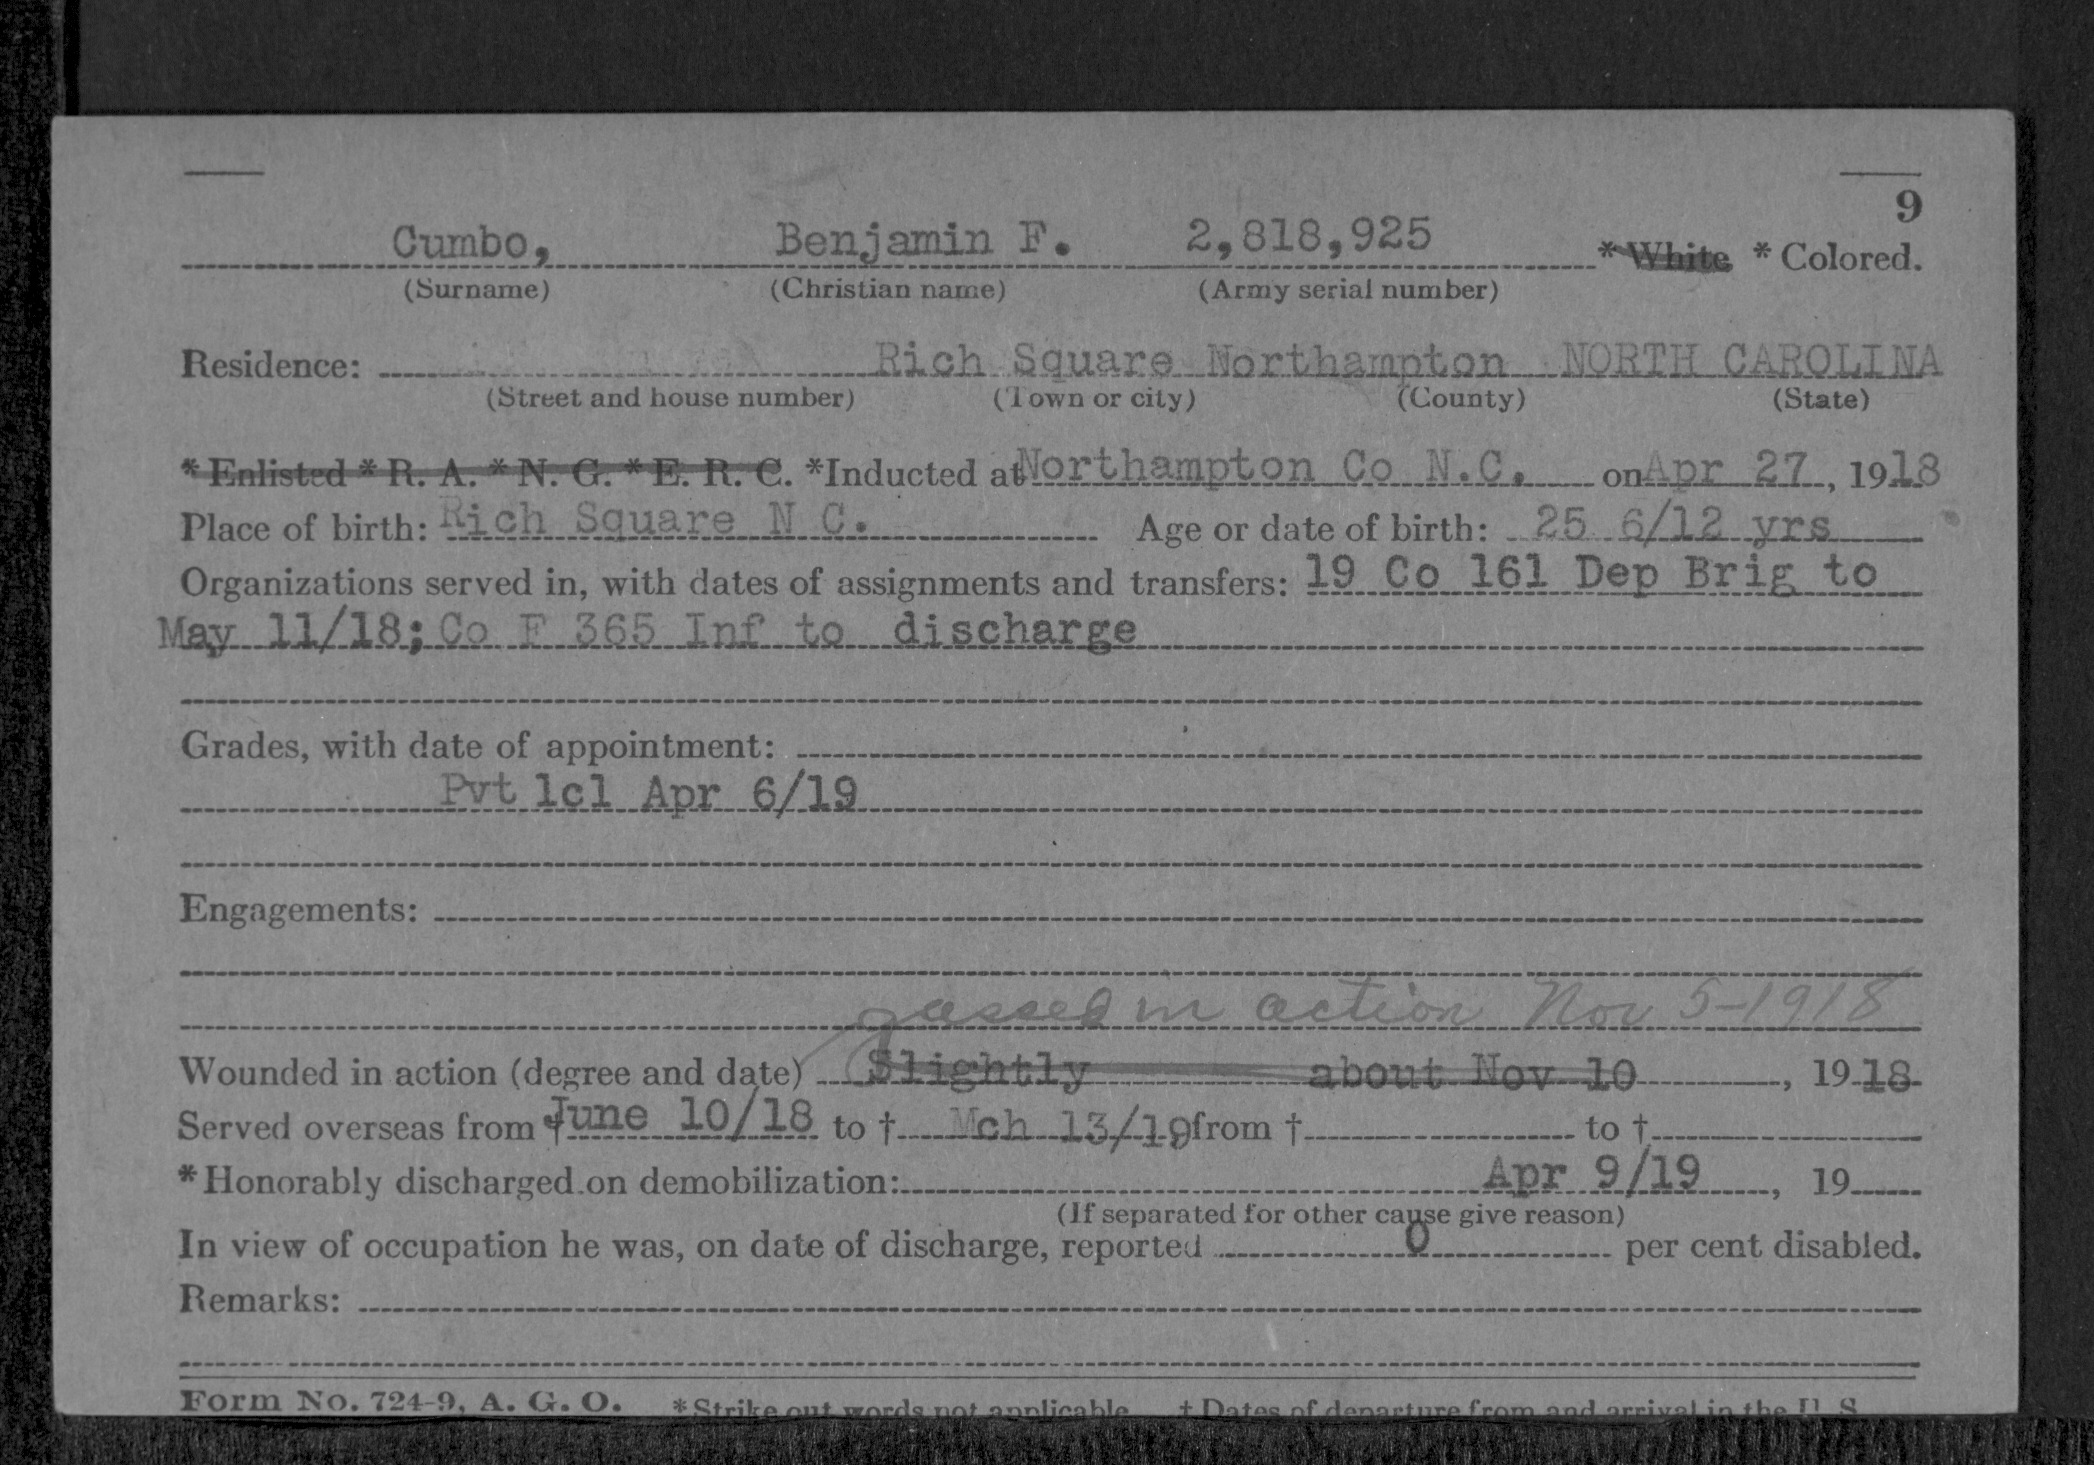 9
Cumbo, Benjamin F. 2,818,925 *White * Colored.
(Surname) (Christian name) (Army serial number)
Residence: Rich Square Northampton NORTH CAROLINA
(Street and house number) (Town or city) (County) (State)
*Enlisted *R. A. *N. G. *E. R. C. *Inducted at Northampton Co N.C. on Apr 27, 1918
Place of birth: Rich Square N C. Age or date of birth: 25 6/12 yrs
Organizations served in, with dates of assignments and transfers: 19 Co 161 Dep Brig to
May 11/18; Co F 365 Inf to discharge
Grades, with date of appointment:
Pvt 1cl Apr 6/19
Engagements:
gassed in action Nov 5-1918
Wounded in action (degree and date) Slightly about Nov 10, 1918
Served overseas from † June 10/18 to † Mch 13/19 from † to †
*Honorably discharged on demobilization: Apr 9/19, 19
(If separated for other cause give reason)
In view of occupation he was, on date of discharge, reported 0 per cent disabled.
Remarks:
Form No. 724-9, A. G. O. *Strike out words not applicable † Dates of departure from and arrival in the U S